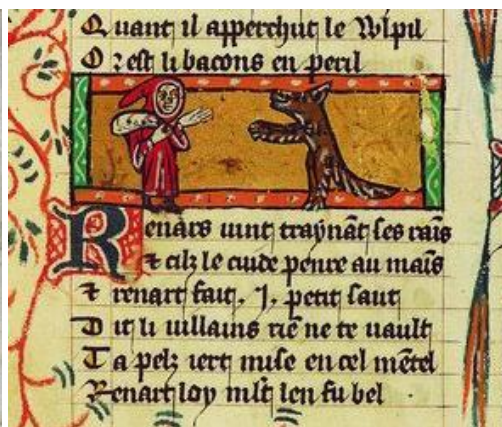 Quant il apperchut le Wlpil
Or est li bacons en peril
Renars uint traynãt ses rais
⁊ cilz le cuide penre au mais
⁊ renart fait .J. petit saut
Dit li uillains riẽ ne te uault
Ta pelz iert mise en cel mẽtel
Renart loy mlt len fu bel .